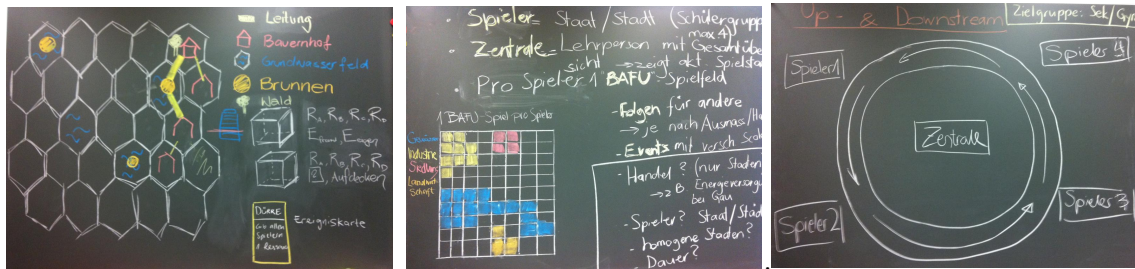 Leitung
Bauernhof
Grundwasserfeld
Brunnen
Wald
R_A, R_B, R_C, R_D
R_A, R_B, R_C, R_D
, Aufdecken
DÜRRE
Gib allen
Spielern
1
Ereigniskarte
• Spieler= Staat/Stadt (Schülergrupp
max 4)
• Zentrale= Lehrperson mit Gesamtübe
sicht → zeigt akt. Spielsta
• Pro Spieler 1 BAFU-Spielfeld
1 BAFU-Spiel pro Spieler
Industrie
Siedlung
Landwirt
schaft
- Folgen für andere
→ je nach Ausmass/
- Events mit versch
- Handel? (nur Staaten
→ z B. Energieversorg
bei Gau
- Spieler? Staat/Städ
- homogene Staaten?
- Dauer?
Up- & Downstream
Zielgruppe: Sek/Gym
Spieler 1
Spieler 4
Zentrale
Spieler 2
Spieler 3